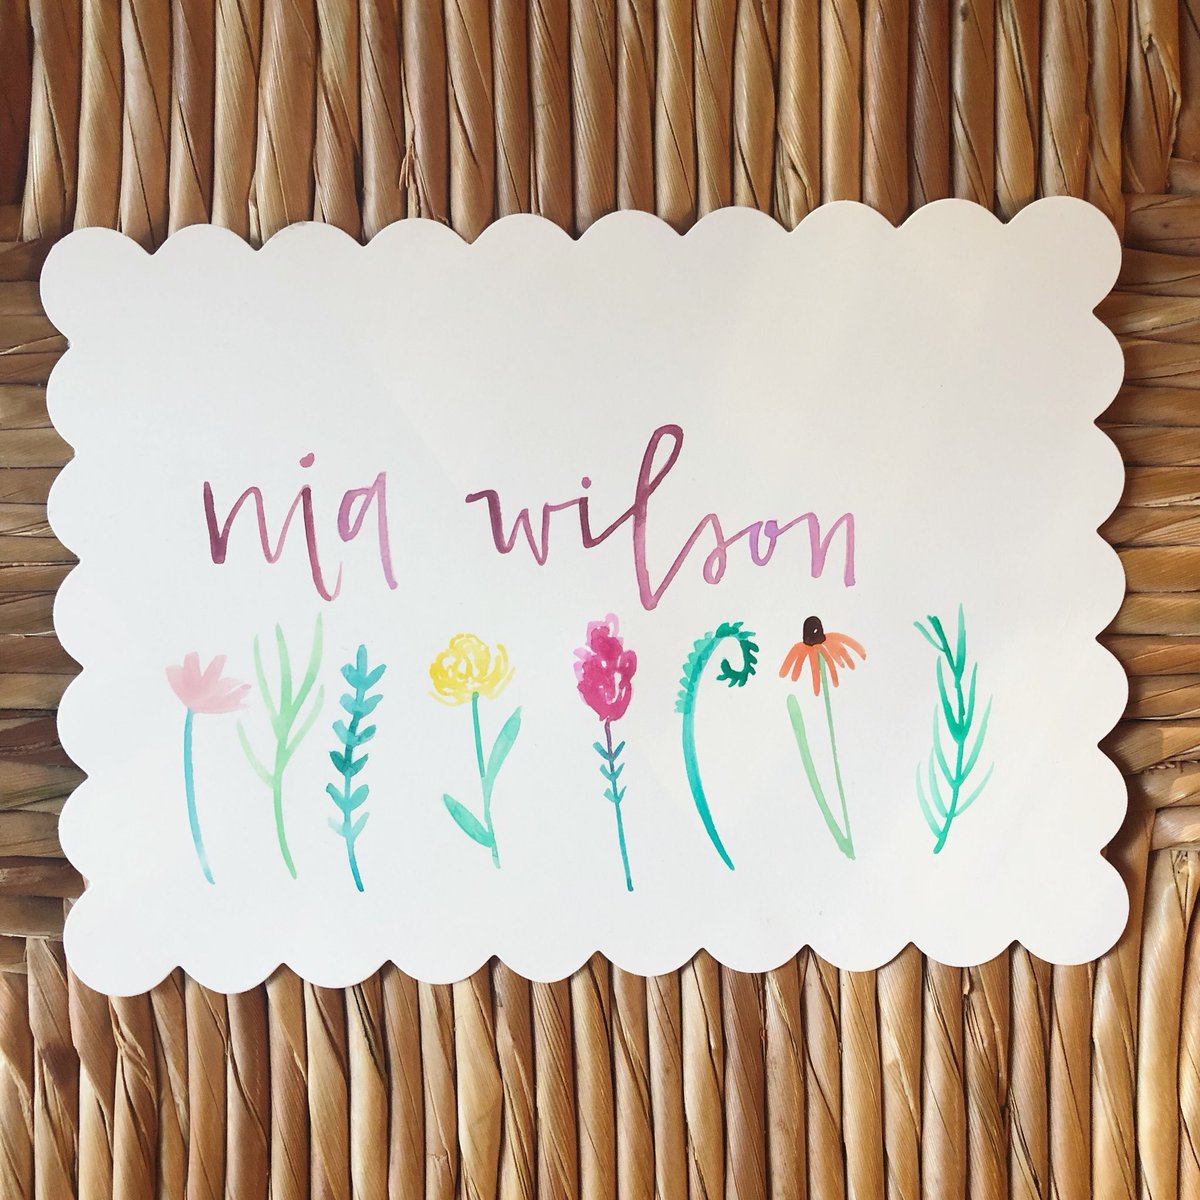 nia wilson